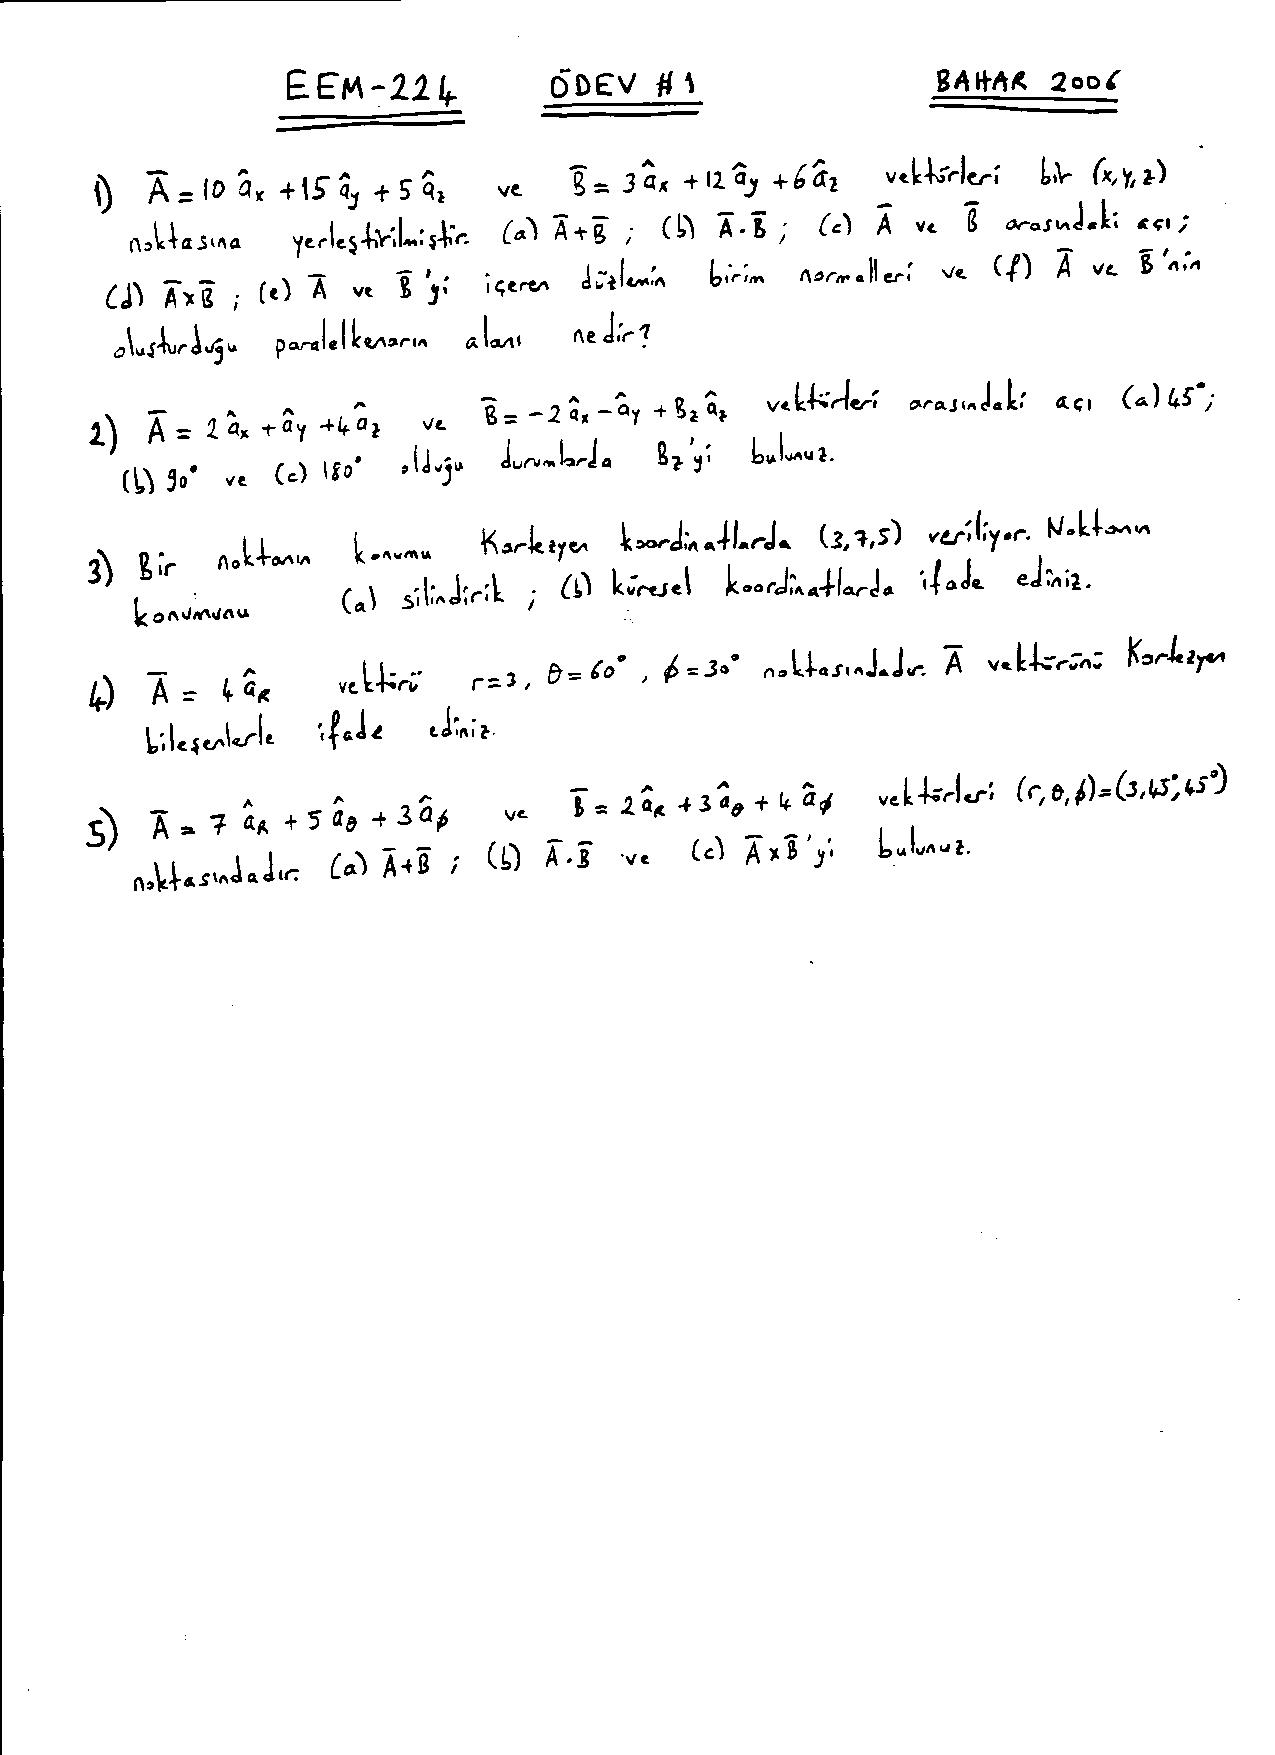 EEM-224 ÖDEV #1 BAHAR 2006
1) A̅ = 10 âx + 15 ây + 5 âz ve B̅ = 3 âx + 12 ây + 6 âz vektörleri bir (x,y,z)
noktasına yerleştirilmiştir. (a) A̅+B̅ ; (b) A̅·B̅ ; (c) A̅ ve B̅ arasındaki açı ;
(d) A̅xB̅ ; (e) A̅ ve B̅'yi içeren düzlemin birim normalleri ve (f) A̅ ve B̅'nin
oluşturduğu paralelkenarın alanı nedir?
2) A̅ = 2 âx + ây + 4 âz ve B̅ = -2 âx - ây + Bz âz vektörleri arasındaki açı (a) 45° ;
(b) 90° ve (c) 180° olduğu durumlarda Bz'yi bulunuz.
3) Bir noktanın konumu Kartezyen koordinatlarda (3,7,5) veriliyor. Noktanın
konumunu (a) silindirik ; (b) küresel koordinatlarda ifade ediniz.
4) A̅ = 4 âR vektörü r=3, θ=60°, ϕ=30° noktasındadır. A̅ vektörünü Kartezyen
bileşenlerle ifade ediniz.
5) A̅ = 7 âR + 5 âθ + 3 âϕ ve B̅ = 2 âR + 3 âθ + 4 âϕ vektörleri (r,θ,ϕ)=(3,45°,45°)
noktasındadır. (a) A̅+B̅ ; (b) A̅·B̅ ve (c) A̅xB̅'yi bulunuz.